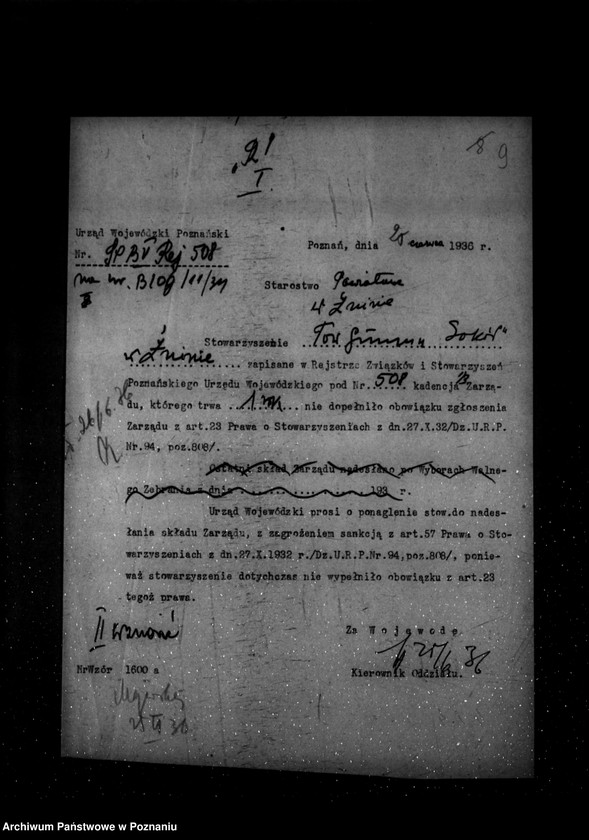 8 9
21
I
Urząd Wojewódzki Poznański
Nr. SPB V Rej 508
Poznań, dnia 25 czerwca 1936 r.
na nr. B
II
Starostwo Powiatowe
w Żninie
Stowarzyszenie Tow Gimn. "Sokół"
w Żninie zapisane w Rejstrze Związków i Stowarzyszeń
Poznańskiego Urzędu Wojewódzkiego pod Nr. 508 kadencja Zarzą-
du, którego trwa nie dopełniło obowiązku zgłoszenia
Zarządu z art.23 Prawa o Stowarzyszeniach z dn.27.X.32/Dz.U.R.P.
Nr.94, poz.808/.
26/6 36
Ostatni skład Zarządu nadesłano po wyborach Walne-
go Zebrania z dnia .................... 193 r.
Urząd Wojewódzki prosi o ponaglenie stow.do nades-
łania składu Zarządu, z zagrożeniem sankcją z art.57 Prawa o Sto-
warzyszeniach z dn.27.X.1932 r./Dz.U.R.P.Nr.94,poz.808/, ponie-
waż stowarzyszenie dotychczas nie wypełniło obowiązku z art.23
tegoż prawa.
II wznowić
Za Wojewodę
25/6 36
Kierownik Oddziału.
NrWzór 1600 a
25 VI 36
Archiwum Państwowe w Poznaniu